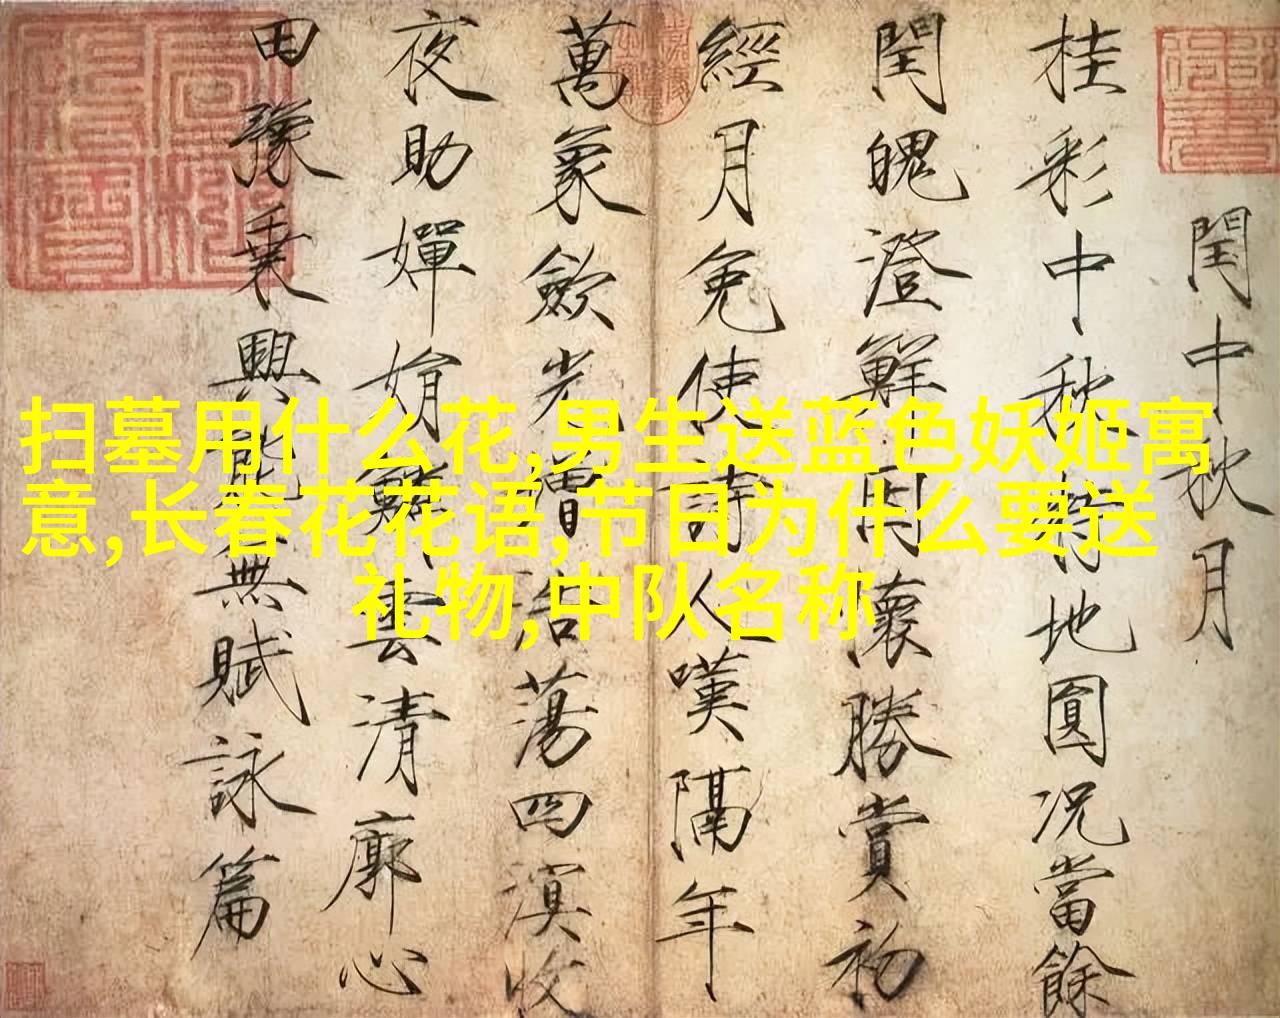 扫墓用什么花,男生送蓝色妖姬寓
意,长春花花语,节日为什么要送
礼物,中队名称
閏中秋月
桂彩中秋特地圓況當餘
閏魄澄鮮因懷勝賞初
經月免使詩人嘆隔年
萬象歛光增浩蕩四溟收
夜助嬋娟鱗雲清廓心
田豫乗興能無賦詠篇